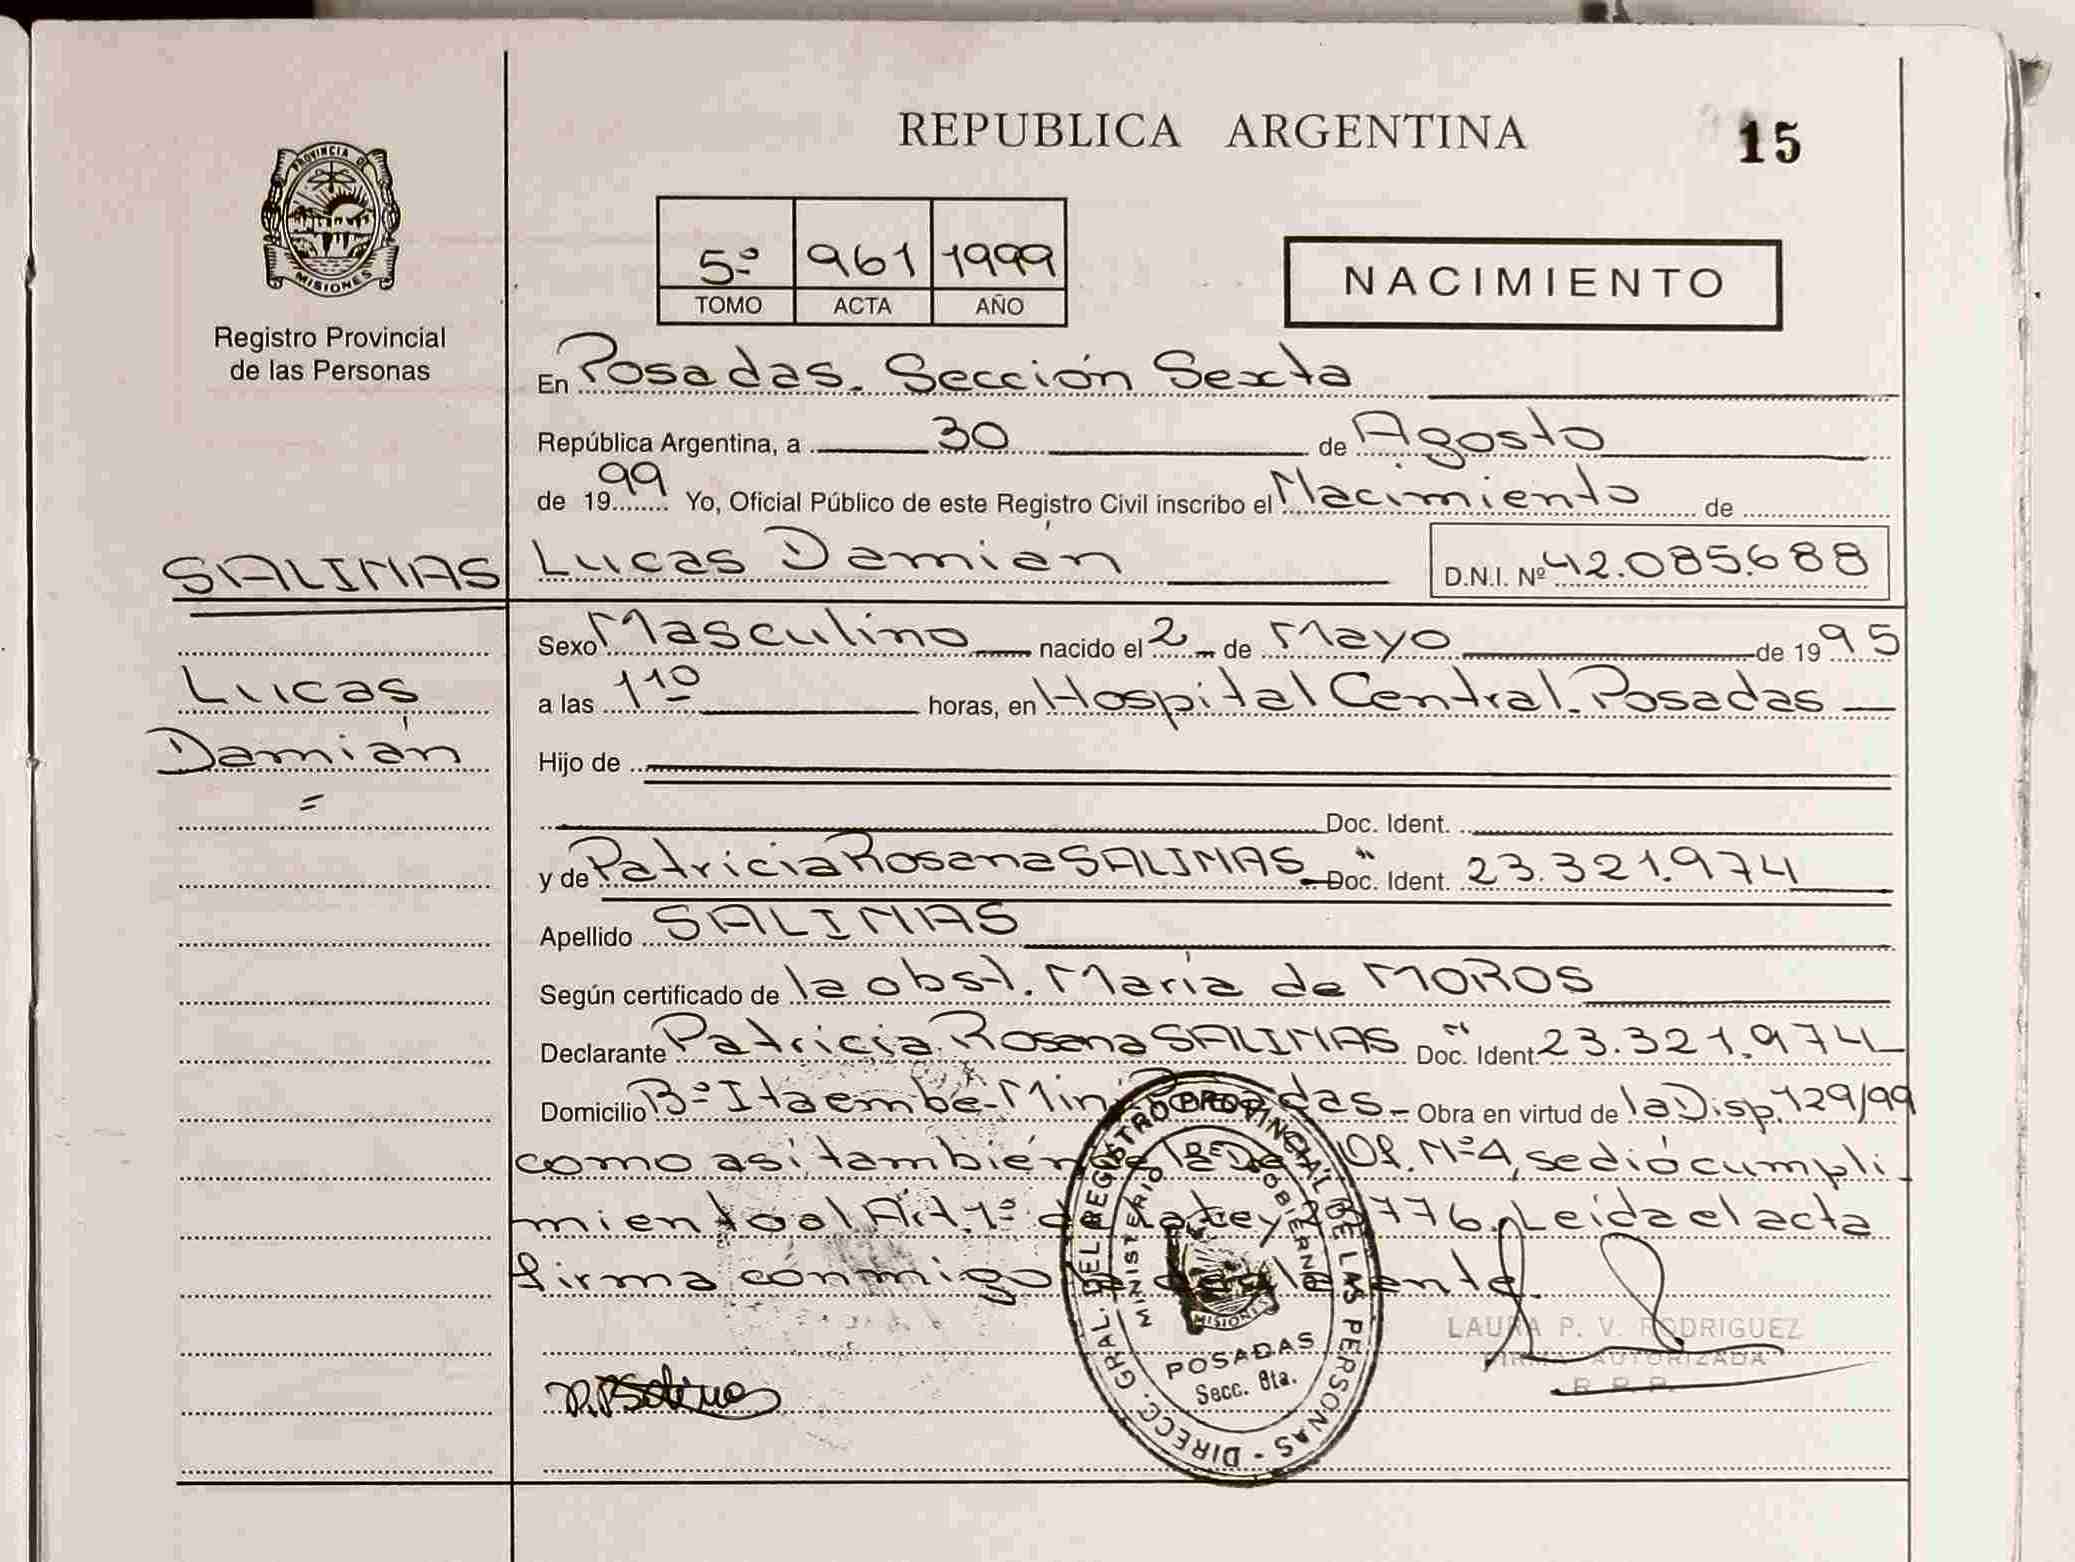 REPUBLICA ARGENTINA
15
PROVINCIA DE
MISIONES
Registro Provincial
de las Personas
5º 961 1999
TOMO ACTA AÑO
NACIMIENTO
En Posadas. Sección Sexta
República Argentina, a 30 de Agosto
de 1999 Yo, Oficial Público de este Registro Civil inscribo el Nacimiento de
SALINAS Lucas Damián D.N.I. Nº 42.085.688
Sexo Masculino nacido el 2 de Mayo de 1995
Lucas
a las 11º horas, en Hospital Central. Posadas
Damián
Hijo de
Doc. Ident.
y de Patricia Rosana SALINAS Doc. Ident. 23.321.974
Apellido SALINAS
Según certificado de la obst. María de MOROS
Declarante Patricia Rosana SALINAS Doc. Ident. 23.321.974
Domicilio Bº Itaembé-Miní Posadas.- Obra en virtud de la Disp. 129/99
como así también Of. Nº 4, se dió cumpli-
miento al Art. 1º de la Ley 776. Leída el acta
firma conmigo
LAURA P. V. RODRIGUEZ
FIRMA AUTORIZADA
R. P. P.
DIRECC. GRAL. DEL REGISTRO PROVINCIAL DE LAS PERSONAS -
MINISTERIO DE GOBIERNO
MISIONES
POSADAS
Secc. 6ta.